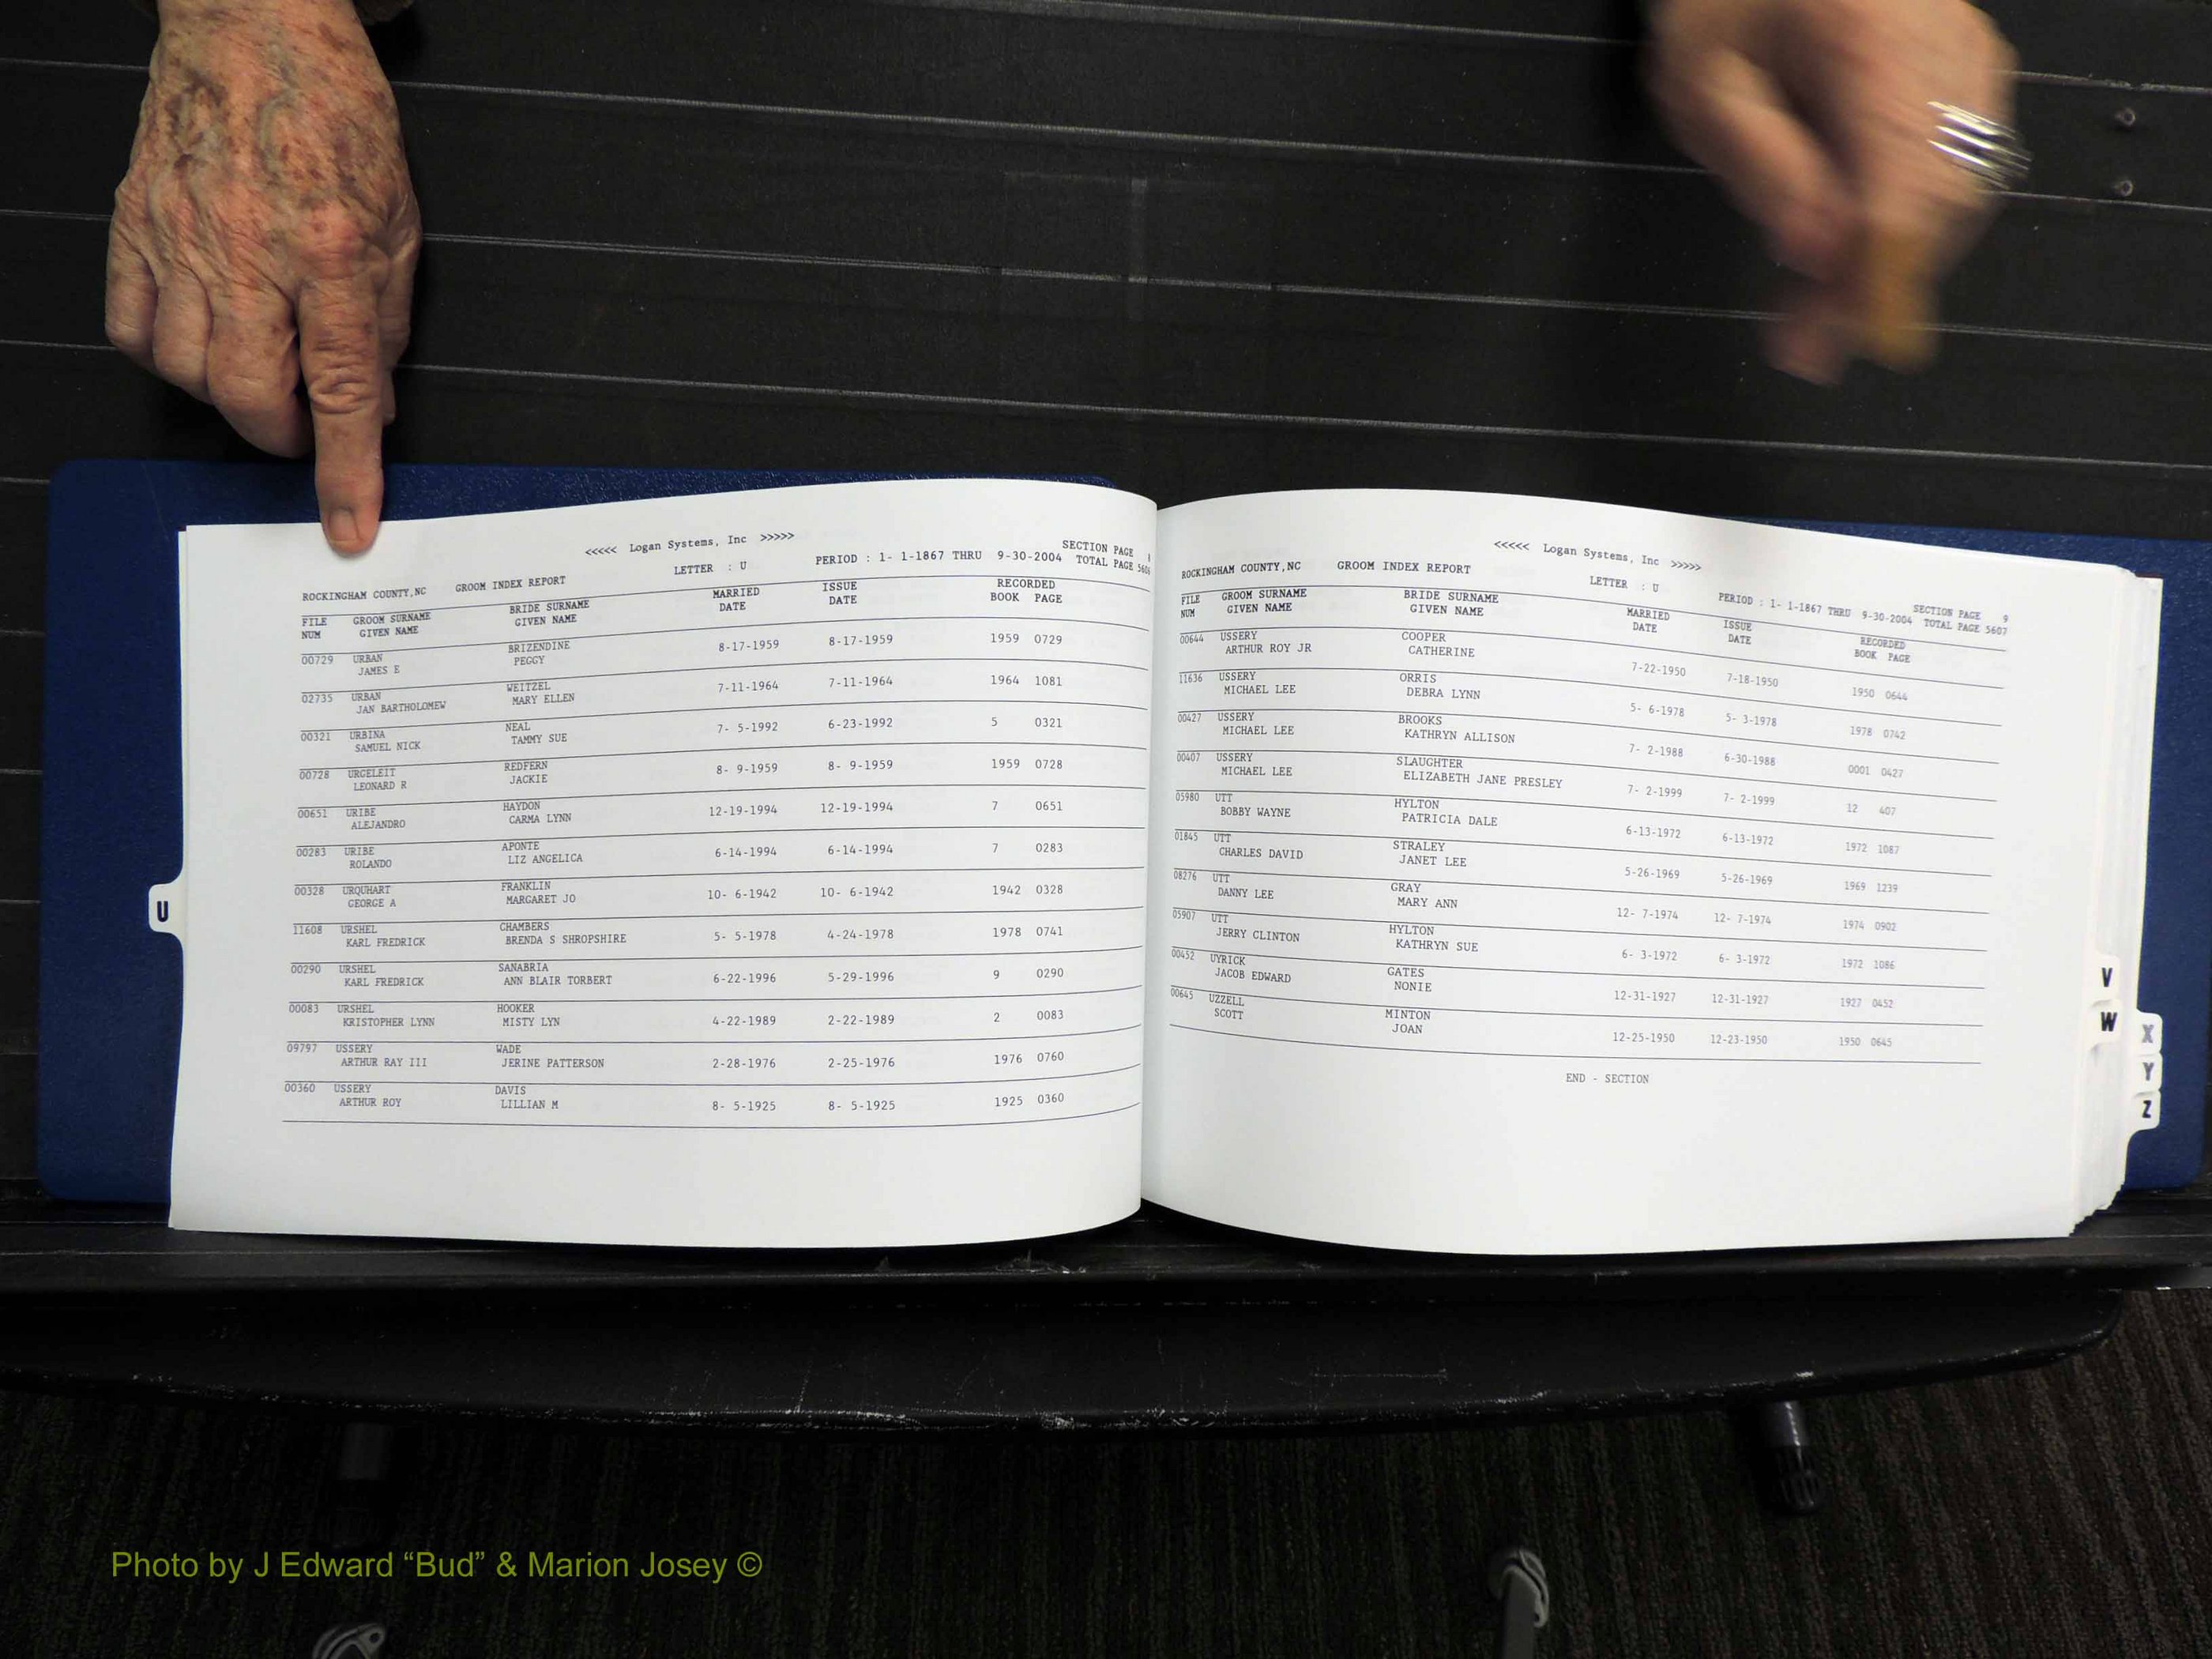 <<<<< Logan Systems, Inc >>>>>
SECTION PAGE
ROCKINGHAM COUNTY,NC GROOM INDEX REPORT LETTER : U PERIOD : 1- 1-1867 THRU 9-30-2004 TOTAL PAGE 5606
FILE GROOM SURNAME BRIDE SURNAME MARRIED ISSUE RECORDED
NUM GIVEN NAME GIVEN NAME DATE DATE BOOK PAGE
00729 URBAN BRIZENDINE 8-17-1959 8-17-1959 1959 0729
JAMES E PEGGY
02735 URBAN WEITZEL 7-11-1964 7-11-1964 1964 1081
JAN BARTHOLOMEW MARY ELLEN
00321 URBINA NEAL 7- 5-1992 6-23-1992 5 0321
SAMUEL NICK TAMMY SUE
00728 URGELEIT REDFERN 8- 9-1959 8- 9-1959 1959 0728
LEONARD R JACKIE
00651 URIBE HAYDON 12-19-1994 12-19-1994 7 0651
ALEJANDRO CARMA LYNN
00283 URIBE APONTE 6-14-1994 6-14-1994 7 0283
ROLANDO LIZ ANGELICA
00328 URQUHART FRANKLIN 10- 6-1942 10- 6-1942 1942 0328
GEORGE A MARGARET JO
11608 URSHEL CHAMBERS 5- 5-1978 4-24-1978 1978 0741
KARL FREDRICK BRENDA S SHROPSHIRE
00290 URSHEL SANABRIA 6-22-1996 5-29-1996 9 0290
KARL FREDRICK ANN BLAIR TORBERT
00083 URSHEL HOOKER 4-22-1989 2-22-1989 2 0083
KRISTOPHER LYNN MISTY LYN
09797 USSERY WADE 2-28-1976 2-25-1976 1976 0760
ARTHUR RAY III JERINE PATTERSON
00360 USSERY DAVIS 8- 5-1925 8- 5-1925 1925 0360
ARTHUR ROY LILLIAN M
U
<<<<< Logan Systems, Inc >>>>>
SECTION PAGE 9
ROCKINGHAM COUNTY,NC GROOM INDEX REPORT LETTER : U PERIOD : 1- 1-1867 THRU 9-30-2004 TOTAL PAGE 5607
FILE GROOM SURNAME BRIDE SURNAME MARRIED ISSUE RECORDED
NUM GIVEN NAME GIVEN NAME DATE DATE BOOK PAGE
00644 USSERY COOPER 7-22-1950 7-18-1950 1950 0644
ARTHUR ROY JR CATHERINE
11636 USSERY ORRIS 5- 6-1978 5- 3-1978 1978 0742
MICHAEL LEE DEBRA LYNN
00427 USSERY BROOKS 7- 2-1988 6-30-1988 0001 0427
MICHAEL LEE KATHRYN ALLISON
00407 USSERY SLAUGHTER 7- 2-1999 7- 2-1999 12 407
MICHAEL LEE ELIZABETH JANE PRESLEY
05980 UTT HYLTON 6-13-1972 6-13-1972 1972 1087
BOBBY WAYNE PATRICIA DALE
01845 UTT STRALEY 5-26-1969 5-26-1969 1969 1239
CHARLES DAVID JANET LEE
08276 UTT GRAY 12- 7-1974 12- 7-1974 1974 0902
DANNY LEE MARY ANN
05907 UTT HYLTON 6- 3-1972 6- 3-1972 1972 1086
JERRY CLINTON KATHRYN SUE
00452 UYRICK GATES 12-31-1927 12-31-1927 1927 0452
JACOB EDWARD NONIE
00645 UZZELL MINTON 12-25-1950 12-23-1950 1950 0645
SCOTT JOAN
END - SECTION
V
W
X
Y
Z
Photo by J Edward “Bud” & Marion Josey ©